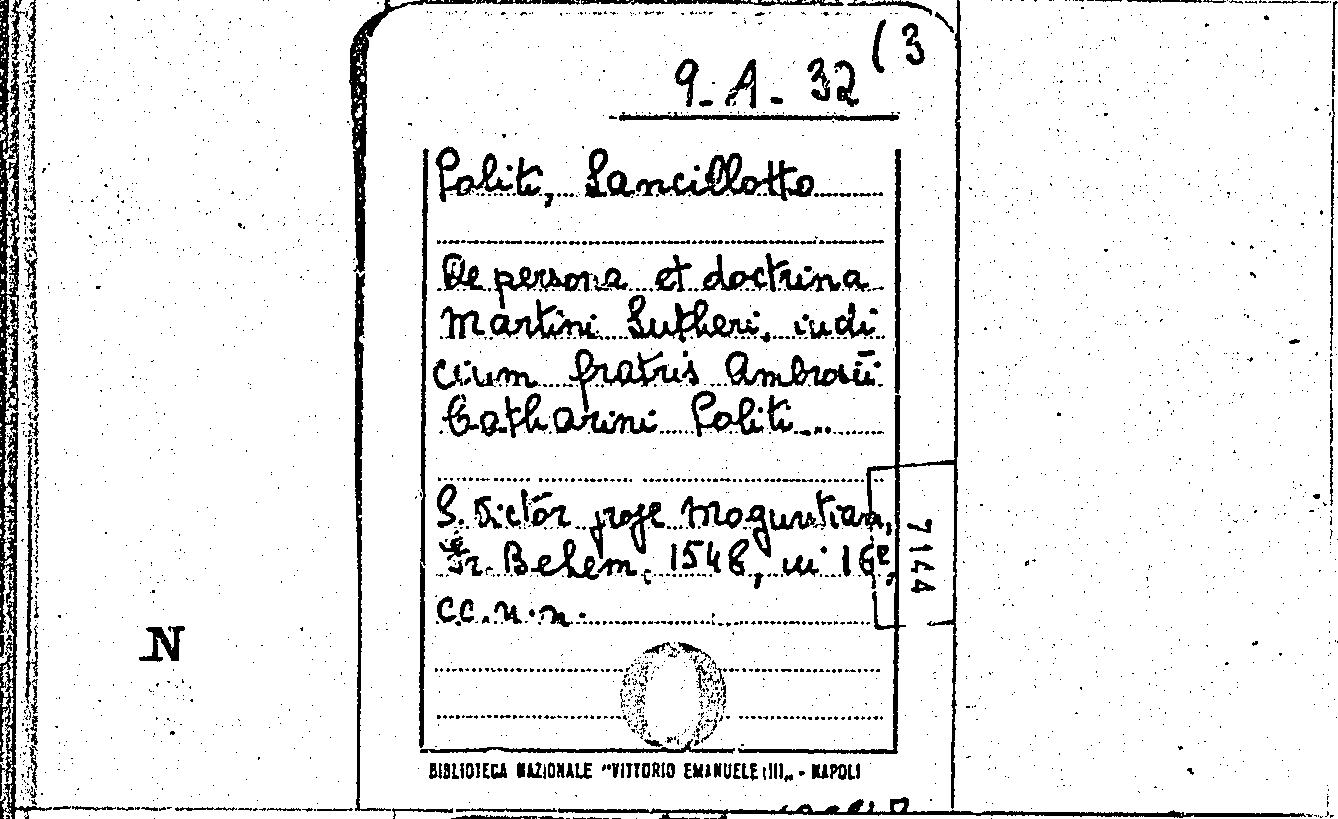 9-A-32 (3
Politi, Lancillotto
De persona et doctrina
Martini Lutheri, iudi
cium fratris Ambrosii
Catharini Politi...
S. Victor prope Moguntiam,
Fr. Behem, 1548, in 16º,
cc.n.n.
7144
N
BIBLIOTECA NAZIONALE "VITTORIO EMANUELE III„ - NAPOLI